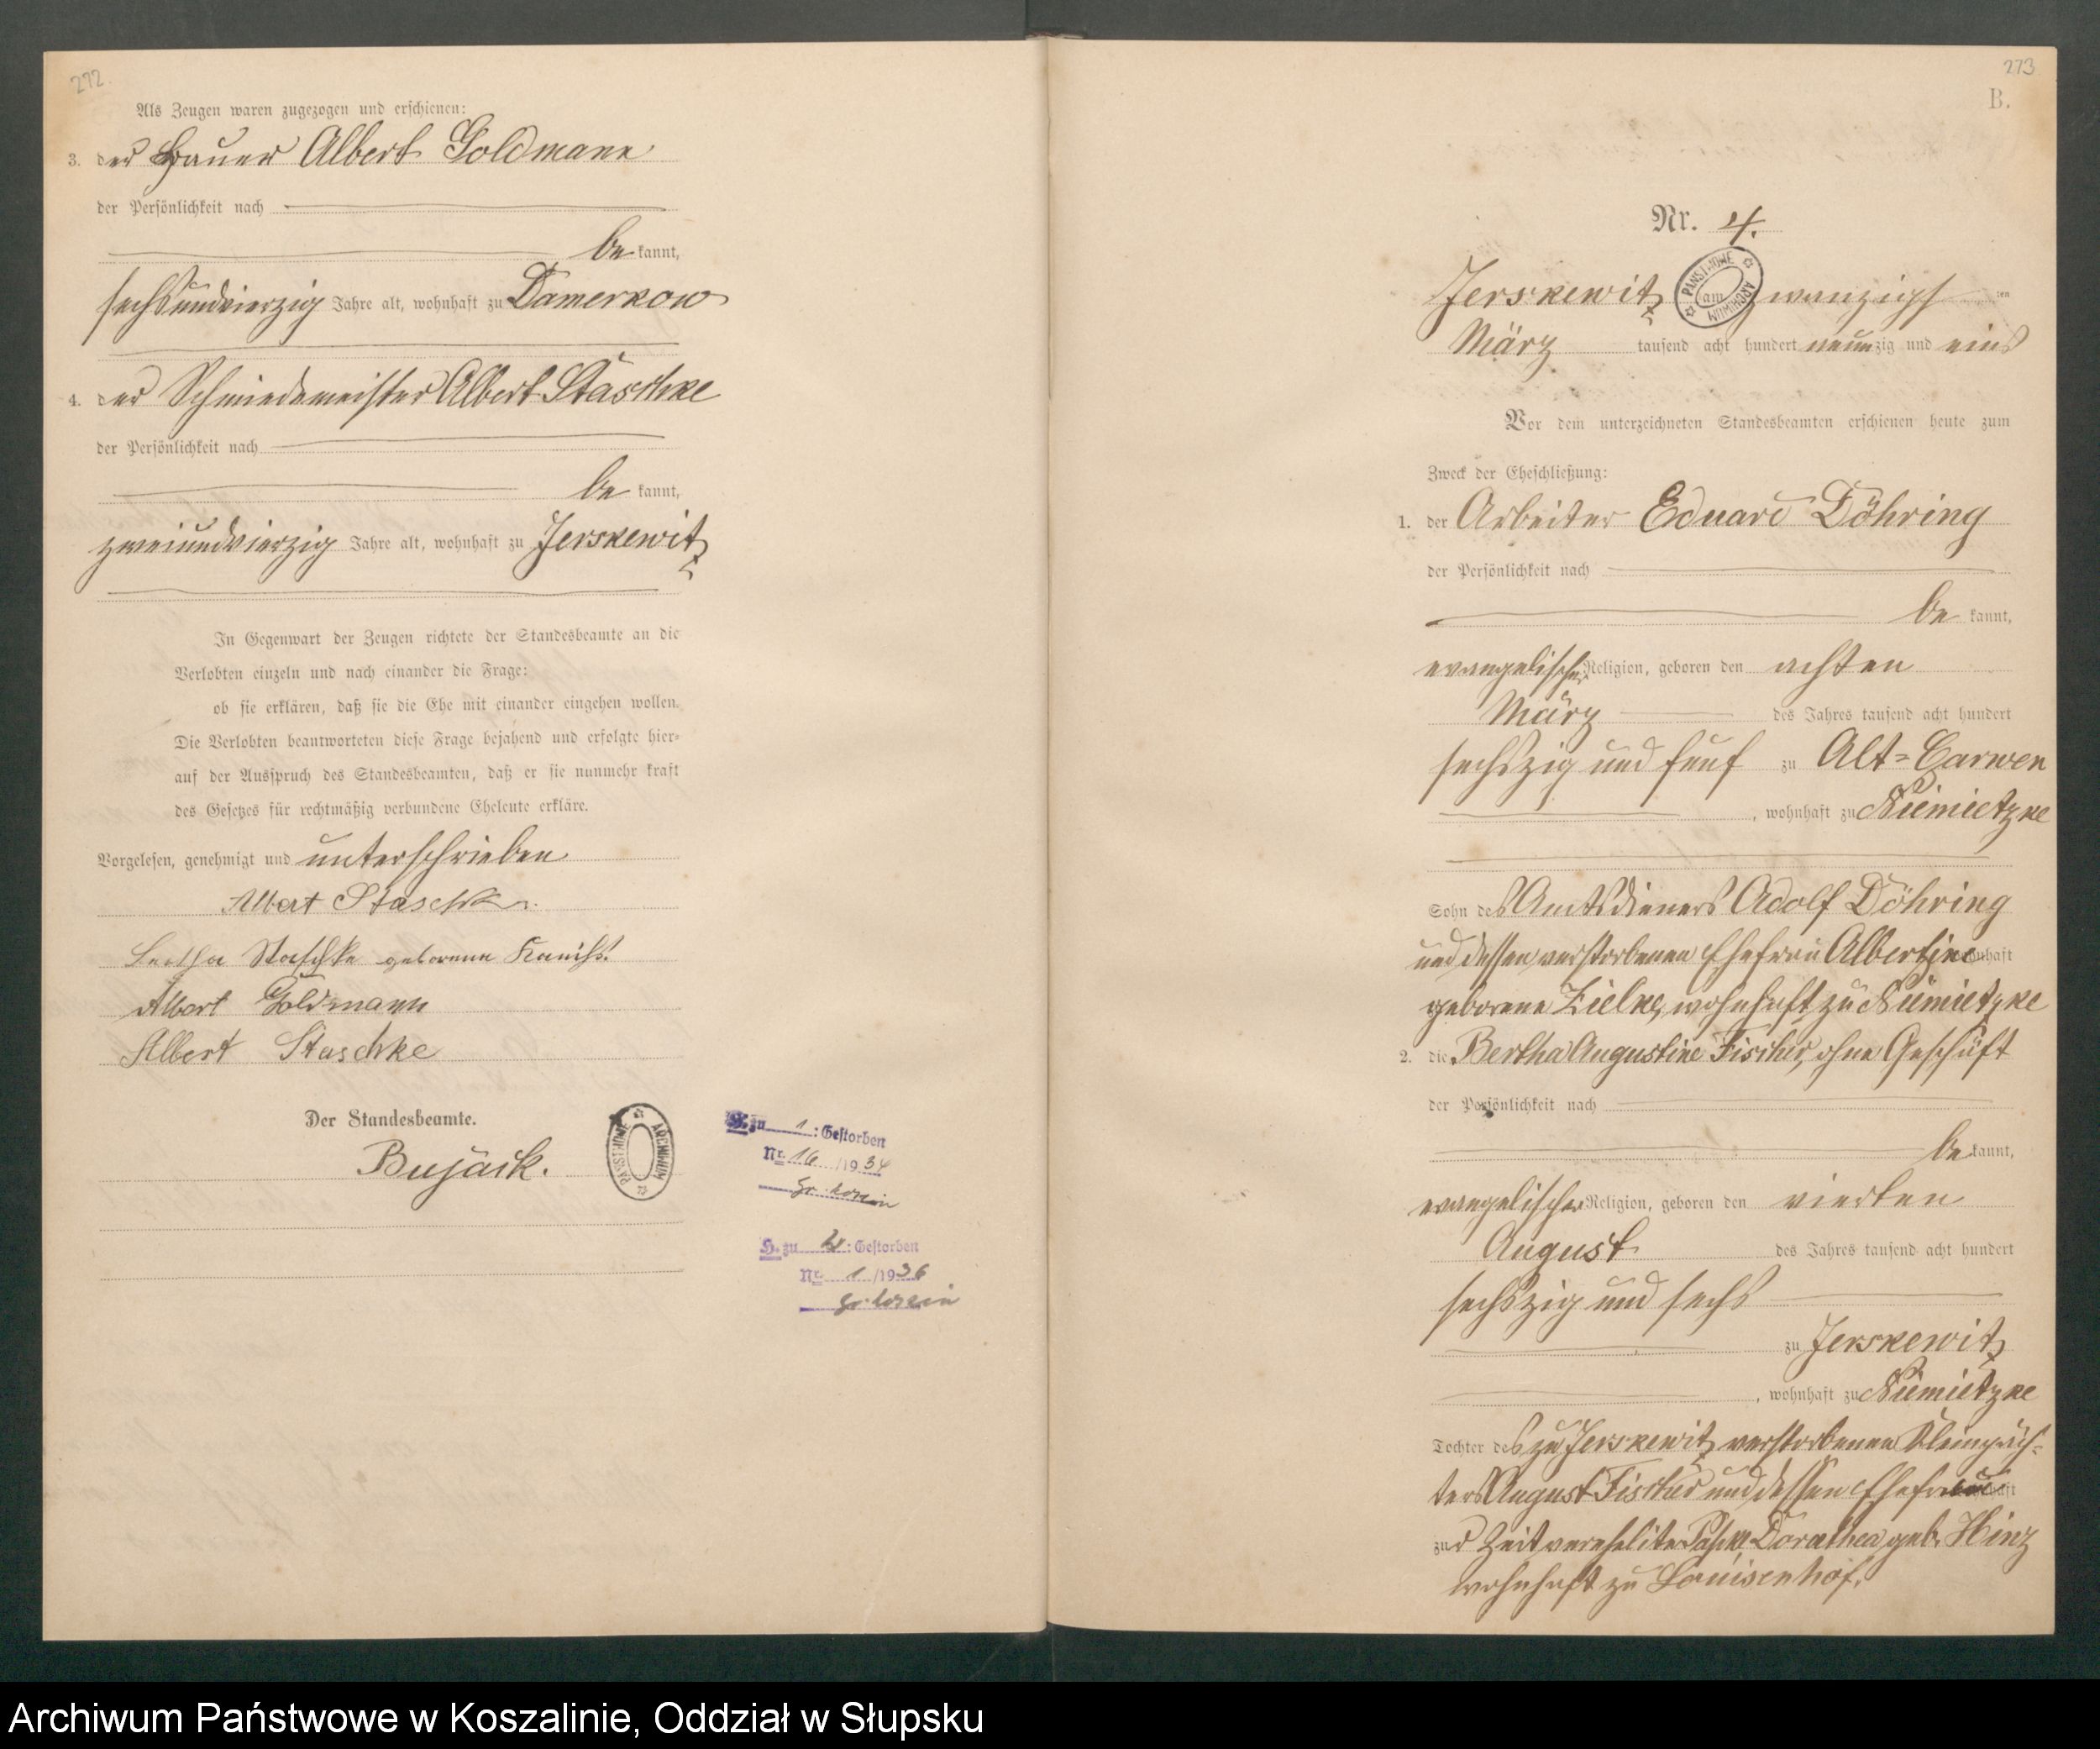 272.
Als Zeugen waren zugezogen und erschienen:
3. der Bauer Albert Goldmann
der Persönlichkeit nach
be kannt,
sechsundvierzig Jahre alt, wohnhaft zu Damerkow
4. der Schmiedemeister Albert Staschke
der Persönlichkeit nach
be kannt,
zweiundvierzig Jahre alt, wohnhaft zu Jerskewitz
In Gegenwart der Zeugen richtete der Standesbeamte an die
Verlobten einzeln und nach einander die Frage:
ob sie erklären, daß sie die Ehe mit einander eingehen wollen.
Die Verlobten beantworteten diese Frage bejahend und erfolgte hier-
auf der Ausspruch des Standesbeamten, daß er sie nunmehr kraft
des Gesetzes für rechtmäßig verbundene Eheleute erkläre.
Vorgelesen, genehmigt und unterschrieben
Albert Staschke
Bertha Staschke geborene
Albert Goldmann
Albert Staschke
Der Standesbeamte.
Bujack.
PAŃSTWOWE ARCHIWUM
H. zu 1 : Gestorben
Nr. 16 /1934
H. zu 2 : Gestorben
Nr. 1 /1936
273
B.
Nr. 4.
Jerskewitz am zwanzigsten
PAŃSTWOWE ARCHIWUM
März tausend acht hundert neunzig und eins
Vor dem unterzeichneten Standesbeamten erschienen heute zum
Zweck der Eheschließung:
1. der Arbeiter Eduard Döhring
der Persönlichkeit nach
be kannt,
evangelischer Religion, geboren den achten
März des Jahres tausend acht hundert
sechszig und fünf zu Alt-Carwen
, wohnhaft zu Niemietzke
Sohn des Amtsdieners Adolf Döhring
und dessen verstorbenen Ehefrau Albertine wohnhaft
geborene Zielke, wohnhaft zu Niemietzke
2. die Bertha Augustine Fischer, ohne Geschäft
der Persönlichkeit nach
be kannt,
evangelischer Religion, geboren den vierten
August des Jahres tausend acht hundert
sechszig und sechs
zu Jerskewitz
, wohnhaft zu Niemietzke
Tochter des zu Jerskewitz verstorbenen Kleinpäch-
ters August Fischer und dessen Ehefrau
zur Zeit verehelichte Dorothea geb. Hinz
wohnhaft zu Louisenhof.
Archiwum Państwowe w Koszalinie, Oddział w Słupsku